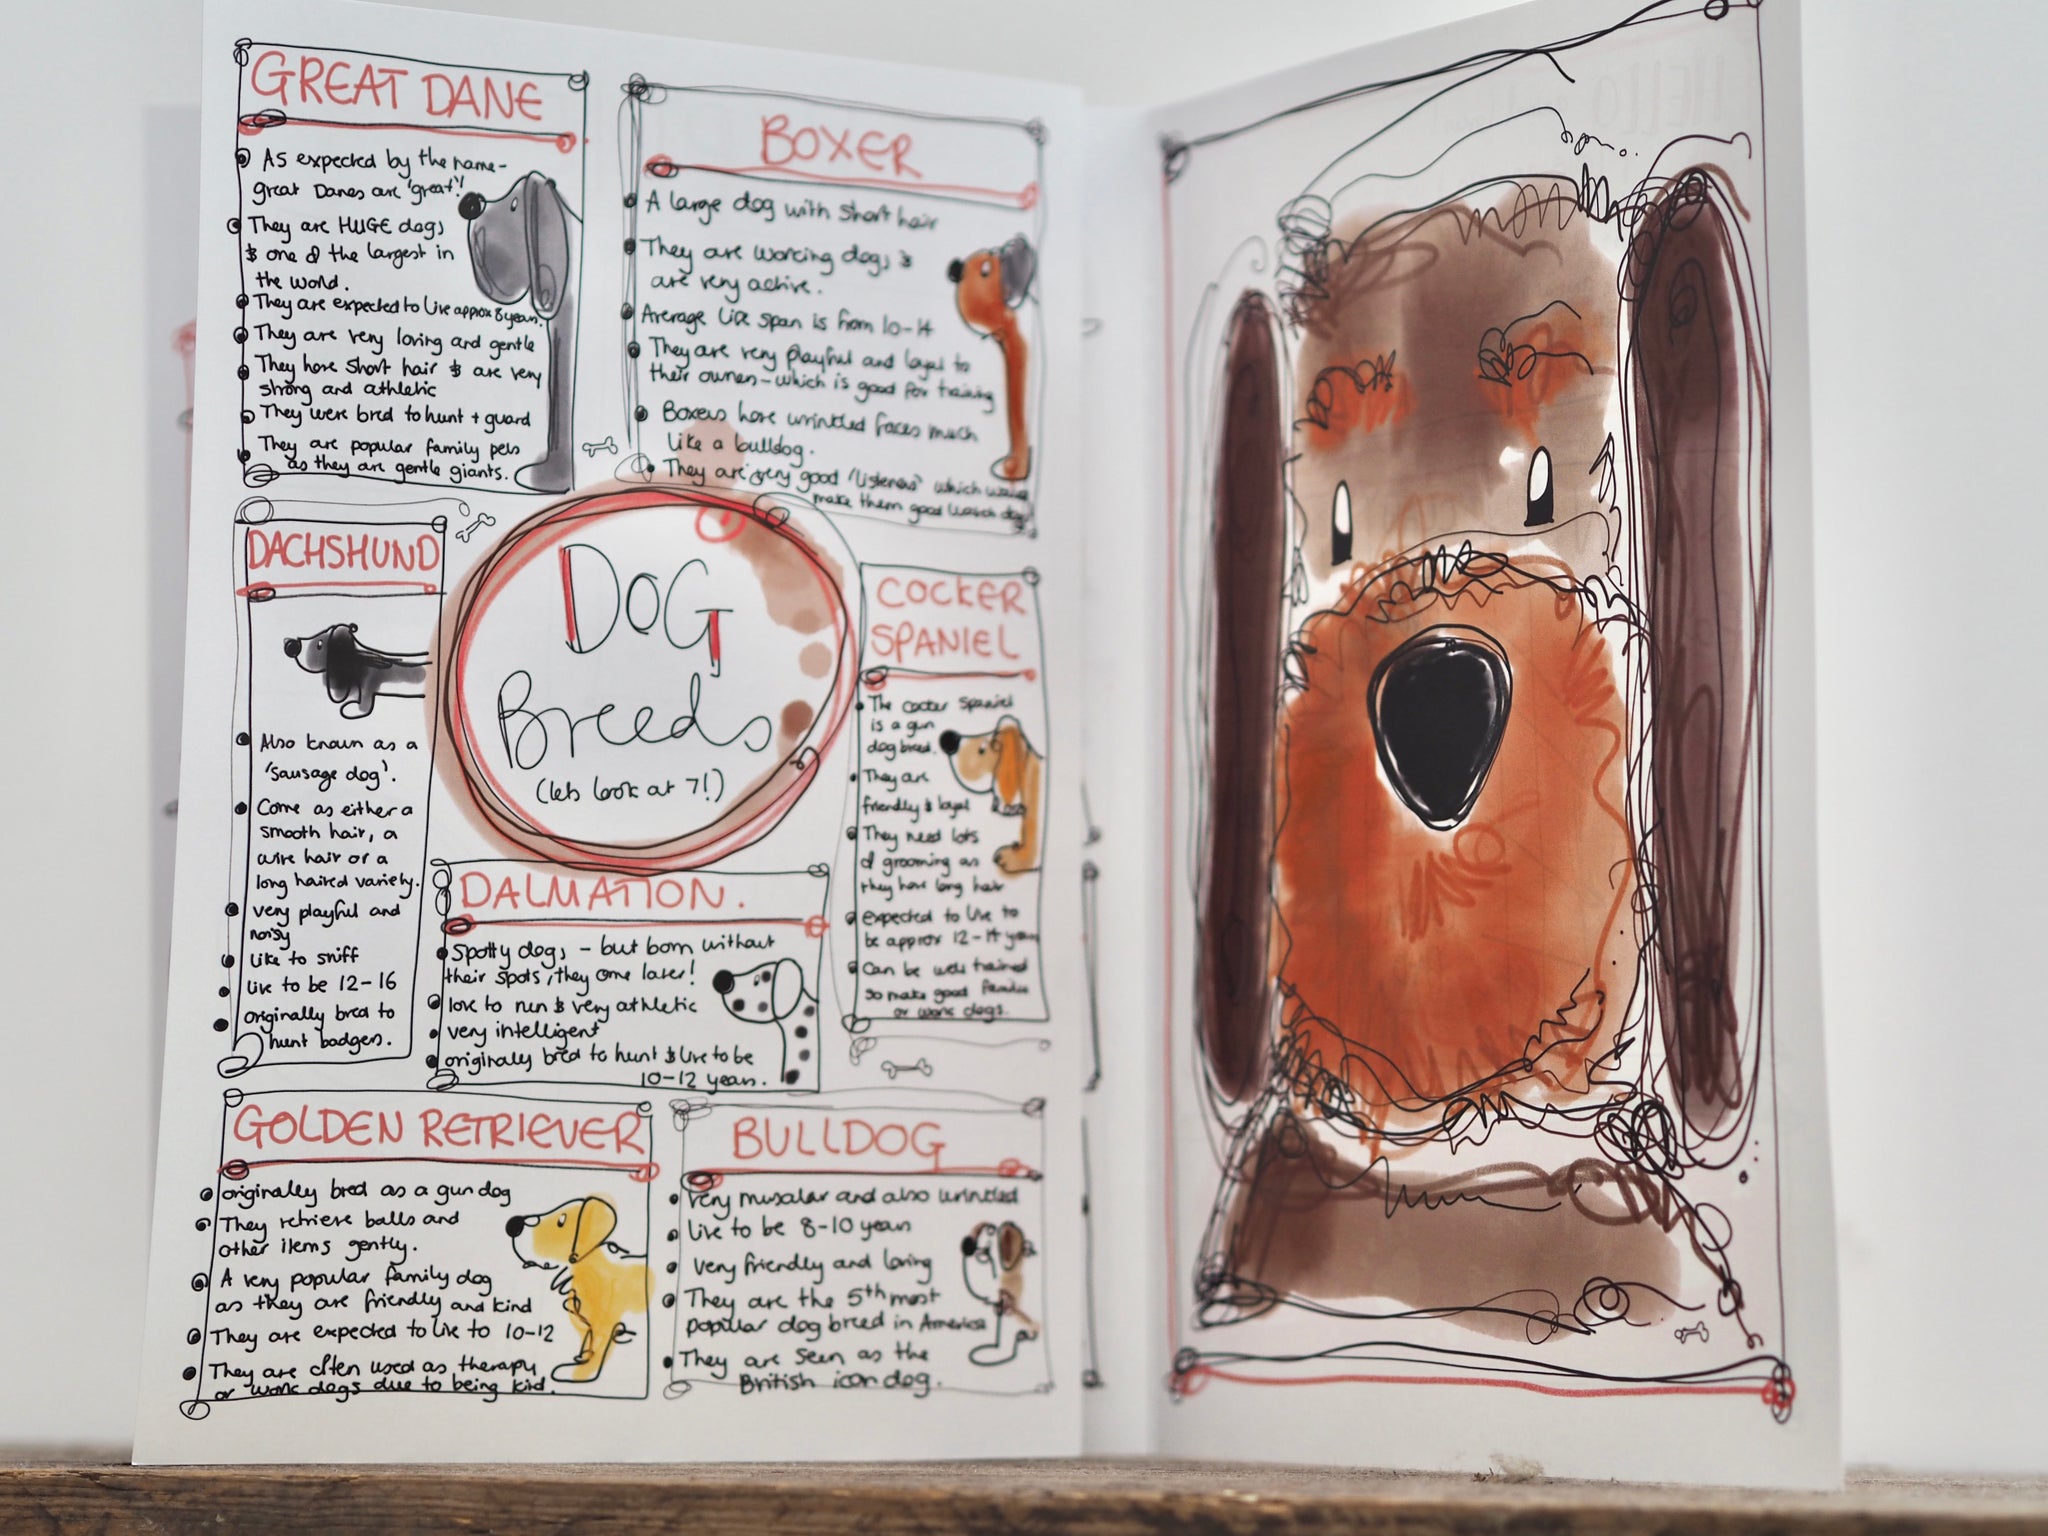 GREAT DANE
As expected by the name-
great Danes are 'great'!
They are HUGE dogs
& one of the largest in
the world.
They are expected to live approx 8 years.
They are very loving and gentle
They have short hair & are very
strong and athletic
They were bred to hunt + guard
They are popular family pets
as they are gentle giants.
BOXER
A large dog with short hair
They are working dogs &
are very active.
Average life span is from 10-14
They are very playful and loyal to
their owners - which is good for training
Boxers have wrinkled faces much
like a bulldog.
They are very good 'listeners' which would
make them good watch dogs!
DACHSHUND
Also known as a
'sausage dog'.
Come as either a
smooth hair, a
wire hair or a
long haired variety.
very playful and
noisy
like to sniff
live to be 12-16
originally bred to
hunt badgers.
DOG
Breeds
(lets look at 7!)
COCKER
SPANIEL
The cocker spaniel
is a gun
dog breed.
They are
friendly & loyal
They need lots
of grooming as
they have long hair
expected to live to
be approx 12-14 years
Can be well trained
so make good families
or work dogs.
DALMATION.
Spotty dogs - but born without
their spots, they come later!
love to run & very athletic
very intelligent
originally bred to hunt & live to be
10-12 years.
GOLDEN RETRIEVER
originally bred as a gun dog
They retrieve balls and
other items gently.
A very popular family dog
as they are friendly and kind
They are expected to live to 10-12
They are often used as therapy
or work dogs due to being kind.
BULLDOG
very muscular and also wrinkled
live to be 8-10 years
very friendly and loving
They are the 5th most
popular dog breed in America
They are seen as the
British icon dog.
HELLO